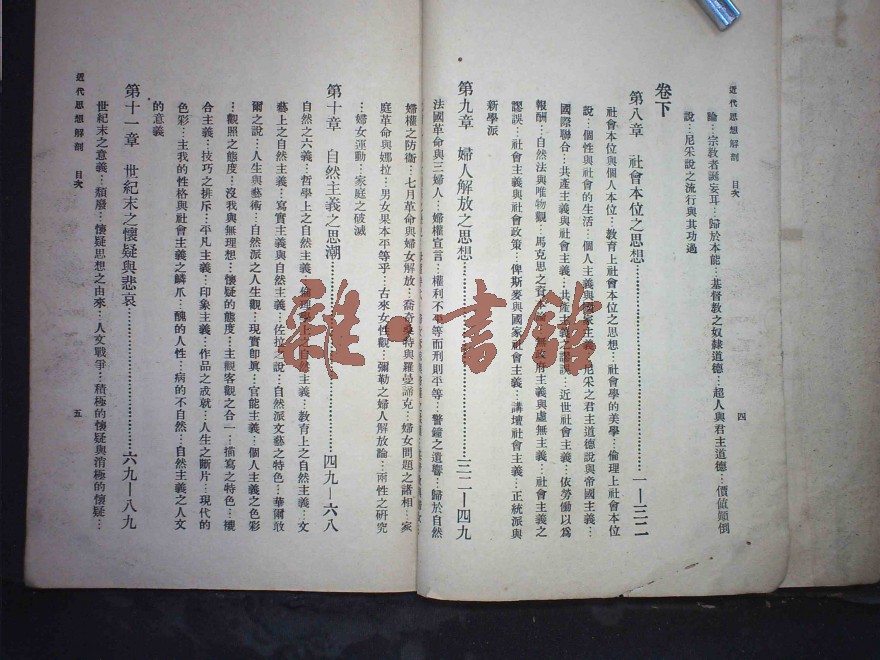 近代思想解剖　目次
四
論…宗教者誕妄耳…歸於本能…基督教之奴隸道德…超人與君主道德…價值顚倒
說…尼采說之流行與其功過
卷下
第八章　社會本位之思想…一―三二
社會本位與個人本位…教育上社會本位之思想…社會學的美學…倫理上社會本位
說…個性與社會的生活…個人主義與國家主義…尼采之君主道德說與帝國主義…
國際聯合…共產主義與社會主義…共產主義之謬誤…近世社會主義…依勞働以爲
報酬…自然法與唯物觀…馬克思之資本…無政府主義與虛無主義…社會主義之
謬誤…社會主義與社會政策…俾斯麥與國家社會主義…講壇社會主義…正統派與
新學派
第九章　婦人解放之思想…三二―四九
法國革命與三婦人…婦權宣言…權利不平等而刑則平等…警鐘之遺響…歸於自然
婦權之防衞…七月革命與婦女解放…喬奇桑特與羅曼諦克…婦女問題之諸相…家
庭革命與娜拉…男女果本平等乎…古來女性觀…彌勒之婦人解放論…兩性之硏究
…婦女運動…家庭之破滅
第十章　自然主義之思潮…四九―六八
自然之六義…哲學上之自然主義…倫理學上之自然主義…教育上之自然主義…文
藝上之自然主義…寫實主義與自然主義…佐拉之說…自然派文藝之特色…華爾敢
爾之說…人生與藝術…自然派之人生觀…現實卽眞…官能主義…個人主義之色彩
…觀照之態度…沒我與無理想…懷疑的態度…主觀客觀之合一…描寫之特色…複
合主義…技巧之排斥…平凡主義…印象主義…作品之成就…人生之斷片…現代的
色彩…主我的性格與社會主義之鱗爪…醜的人性…病的不自然…自然主義之人文
的意義
第十一章　世紀末之懷疑與悲哀…六九―八九
世紀末之意義…頹廢…懷疑思想之由來…人文戰爭…積極的懷疑與消極的懷疑…
近代思想解剖　目次
五
雜·書館